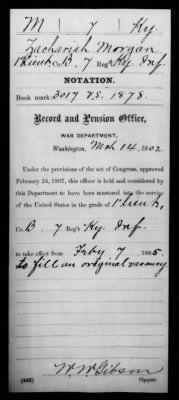 M 7 Ky.
Zachariah Morgan
1 Lieut., Co. B, 7 Reg't Ky. Inf.
NOTATION.
Book mark 3017 V.S. 1878.
Record and Pension Office,
WAR DEPARTMENT,
Washington, Mch 14, 1902.
Under the provisions of the act of Congress, approved
February 24, 1897, this officer is held and considered by
this Department to have been mustered into the service
of the United States in the grade of 1' Lieut.,
Co. B, 7 Reg't Ky. Inf.
to take effect from Feby 7, 1865.
to fill an original vacancy
W. W. Gibson
(442) Copyist.